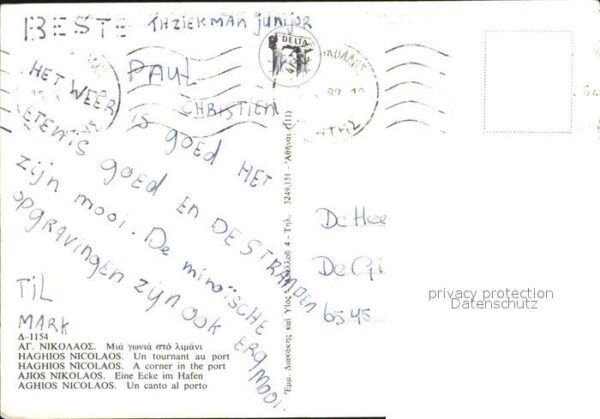 BESTE THZIEKMAN junior
PAUL
CHRISTIEN
HET WEER IS goed HET
ETEN IS goed EN DE STRANDEN
zijn mooi. De minoïsche
opgravingen zijn ook ERG MOOI.
TIL
MARK
DELTA
De Hee
De Gi
6545
privacy protection
Datenschutz
Δ-1154
ΑΓ. ΝΙΚΟΛΑΟΣ. Μιά γωνιά στό λιμάνι
HAGHIOS NICOLAOS. Un tournant au port
HAGHIOS NICOLAOS. A corner in the port
AJIOS NIKOLAOS. Eine Ecke im Hafen
AGHIOS NICOLAOS. Un canto al porto
Έμμ. Διακάκης καί Υίός 4 - Τηλ. 3249.151 - Ἀθῆναι (111)